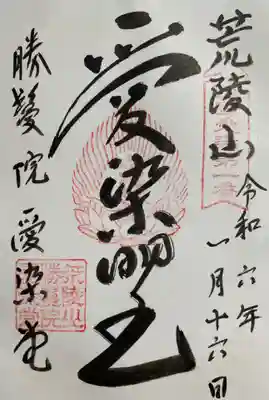 荒陵山
令和六年
一月十六日
愛染明王
勝鬘院 愛染堂